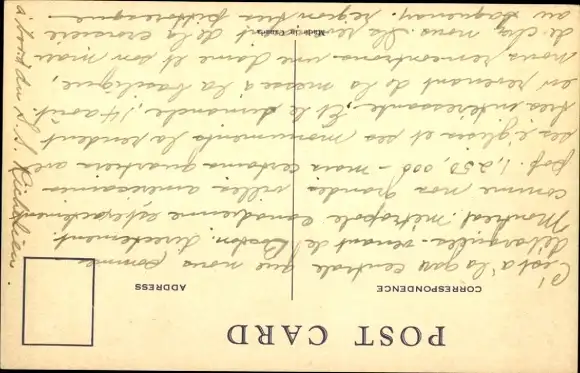 POST CARD
CORRESPONDENCE
ADDRESS
C'est à la gare centrale que nous sommes
débarqués venant de Boston directement.
Montréal métropole canadienne est exactement
comme nos grandes villes américaines
pop. 1,250,000 - mais certains quartiers avec
ses églises et ses monuments la rendent
très intéressante. Et le dimanche, 14 août
en revenant de la messe à la basilique,
nous rencontrons une dame et son mari
de chez nous. La veille de la croisière
au Saguenay, region très pittoresque
à bord du S.S. Richelieu.